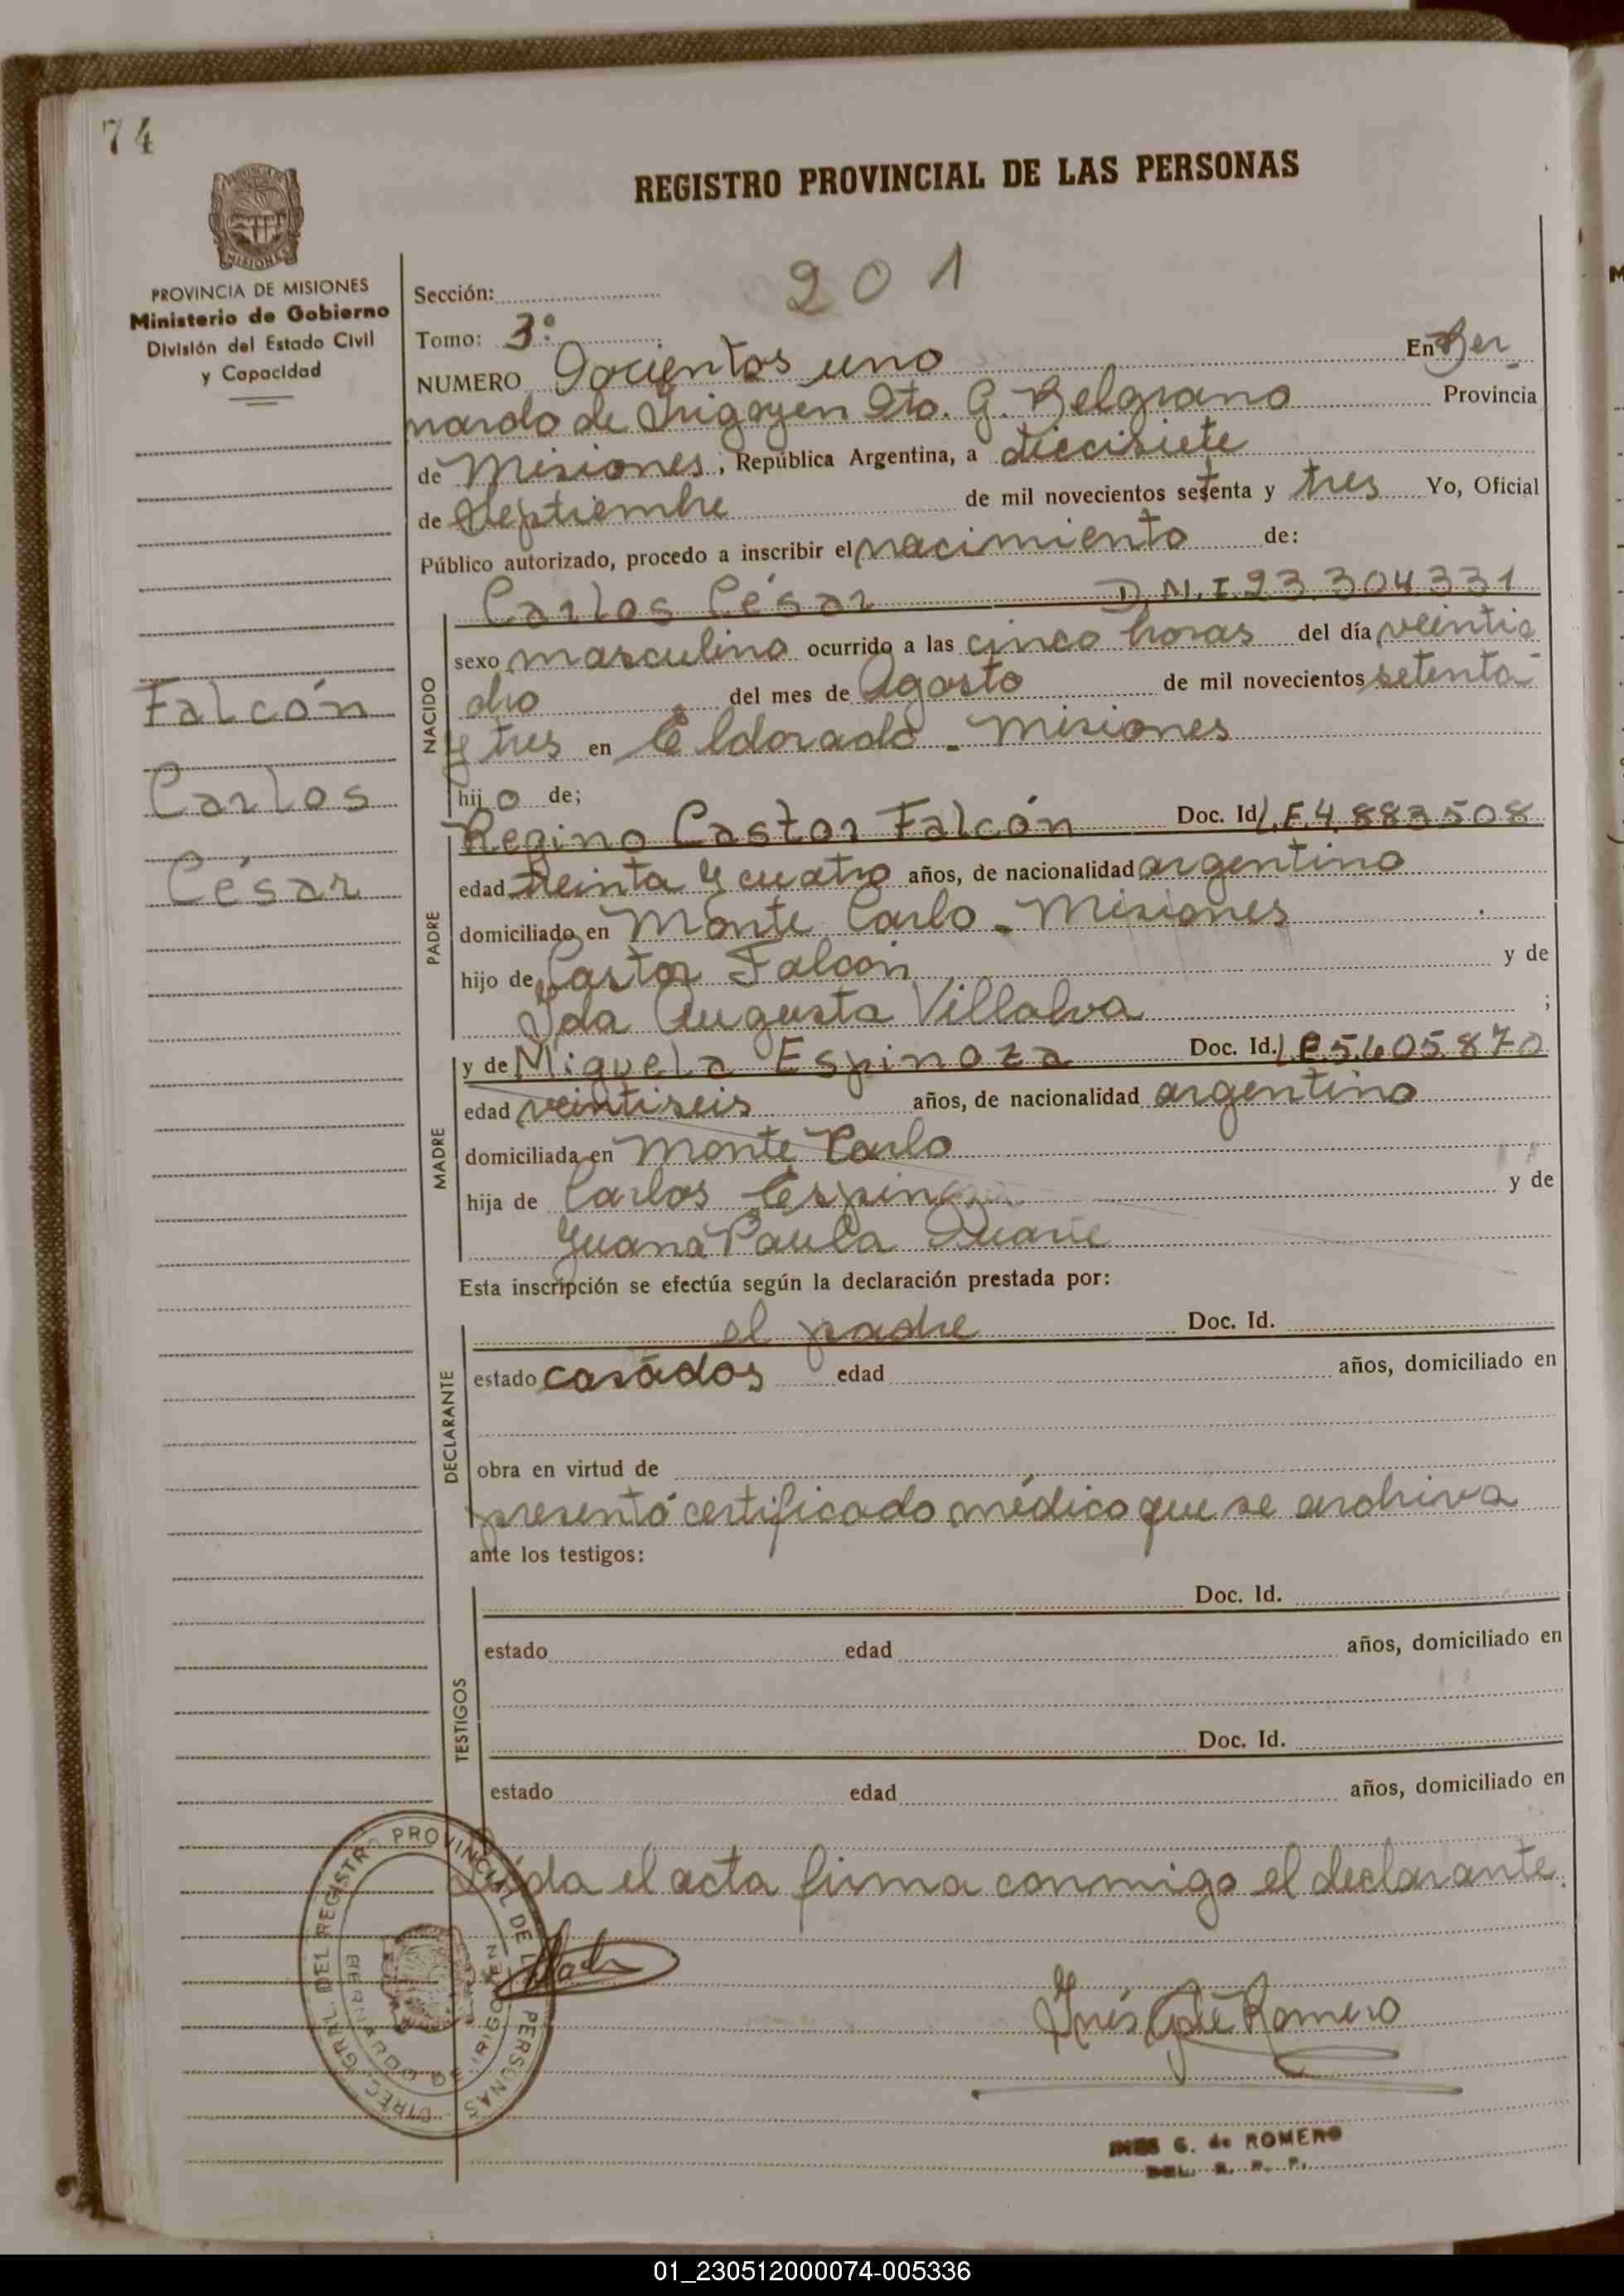 74
REGISTRO PROVINCIAL DE LAS PERSONAS
MISIONES
PROVINCIA DE MISIONES
Ministerio de Gobierno
División del Estado Civil
y Capacidad
Falcón
Carlos
César
201
Sección:
Tomo: 3º
NUMERO Docientos uno En Ber
nardo de Irigoyen Dto. G. Belgrano Provincia
de Misiones, República Argentina, a diecisiete
de Septiembre de mil novecientos setenta y tres Yo, Oficial
Público autorizado, procedo a inscribir el nacimiento de:
Carlos César D.N.I. 23.304331
NACIDO
sexo masculino ocurrido a las cinco horas del día veintio
cho del mes de Agosto de mil novecientos setenta
y tres en Eldorado - Misiones
hijo de;
PADRE
Regino Castor Falcón Doc. Id L.E 4.883508
edad treinta y cuatro años, de nacionalidad argentino
domiciliado en Monte Carlo - Misiones
hijo de Castor Falcón y de
Ida Augusta Villalva ;
MADRE
y de Miguela Espinoza Doc. Id. L.C 5.605.870
edad veintiseis años, de nacionalidad argentino
domiciliada en Monte Carlo
hija de Carlos y de
Juana Paula
Esta inscripción se efectúa según la declaración prestada por:
DECLARANTE
el padre Doc. Id.
estado casados edad años, domiciliado en
obra en virtud de
presentó certificado médico que se archiva
ante los testigos:
TESTIGOS
Doc. Id.
estado edad años, domiciliado en
Doc. Id.
estado edad años, domiciliado en
Leida el acta firma conmigo el declarante.
DIREC. GRAL. DEL REGISTRO PROVINCIAL DE L PERSONAS
BERNARDO DE IRIGOYEN
Inés G. de Romero
INES G. de ROMERO
DEL. R. P. P.
01_230512000074-005336